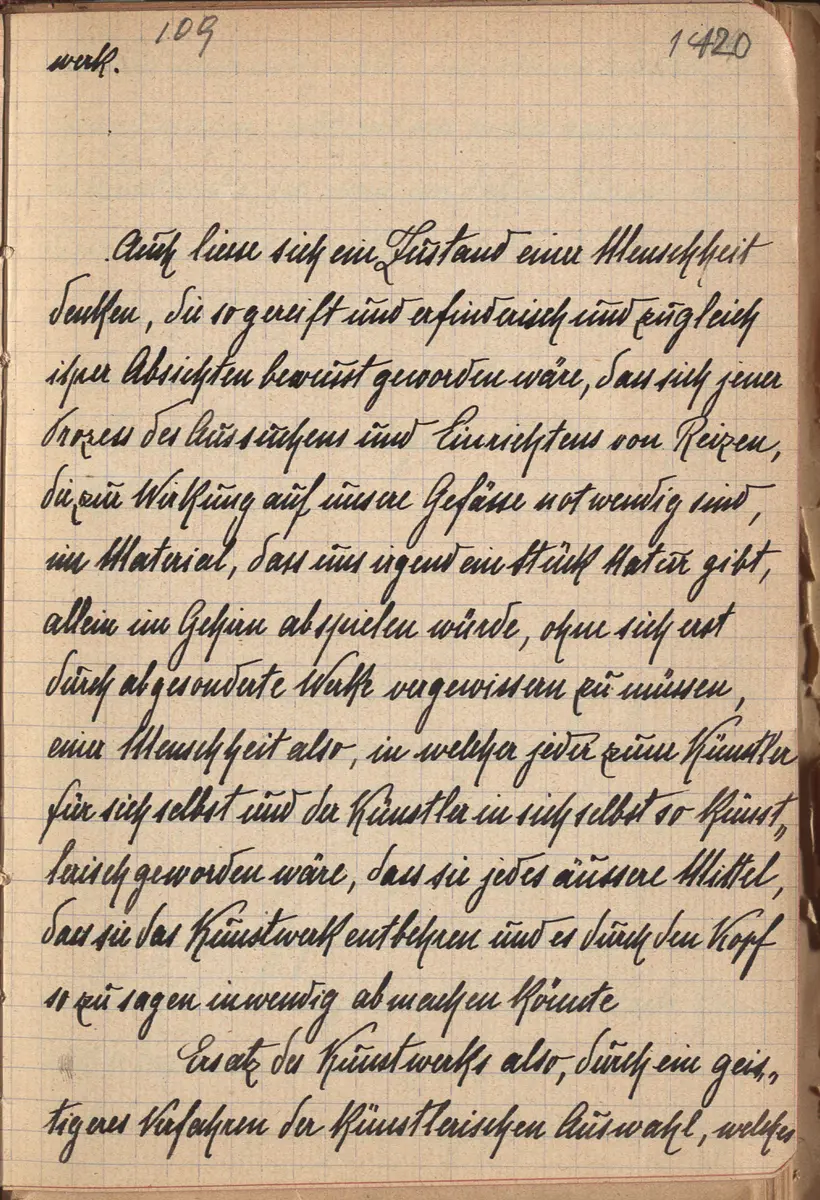 109
1420
werk.
Auch liesse sich ein Zustand einer Menschheit
denken, die so gereift und erfinderisch und zugleich
ihrer Absichten bewusst geworden wäre, dass sich jener
Prozess des Aussuchens und Einrichtens von Reizen,
die zur Wirkung auf unsere Gefässe notwendig sind,
im Material, dass uns irgend ein Stück Natur gibt,
allein im Gehirn abspielen würde, ohne sich erst
durch abgesonderte Werke vergewissern zu müssen,
einer Menschheit also, in welcher jeder zum Künstler
für sich selbst und der Künstler in sich selbst so künst„
lerisch geworden wäre, dass sie jedes äussere Mittel,
dass sie das Kunstwerk entbehren und es durch den Kopf
so zu sagen inwendig abmachen könnte
Ersatz des Kunstwerks also, durch ein geis„
tigeres Verfahren der künstlerischen Auswahl, welches